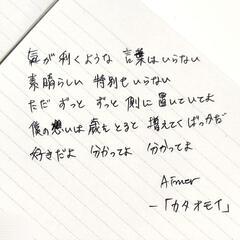 気が利くような 言葉はいらない
素晴らしい 特別もいらない
ただ ずっと ずっと 側に置いていてよ
僕の想いは歳をとると 増えてくばっかだ
好きだよ 分かってよ 分かってよ
Aimer
-「カタオモイ」